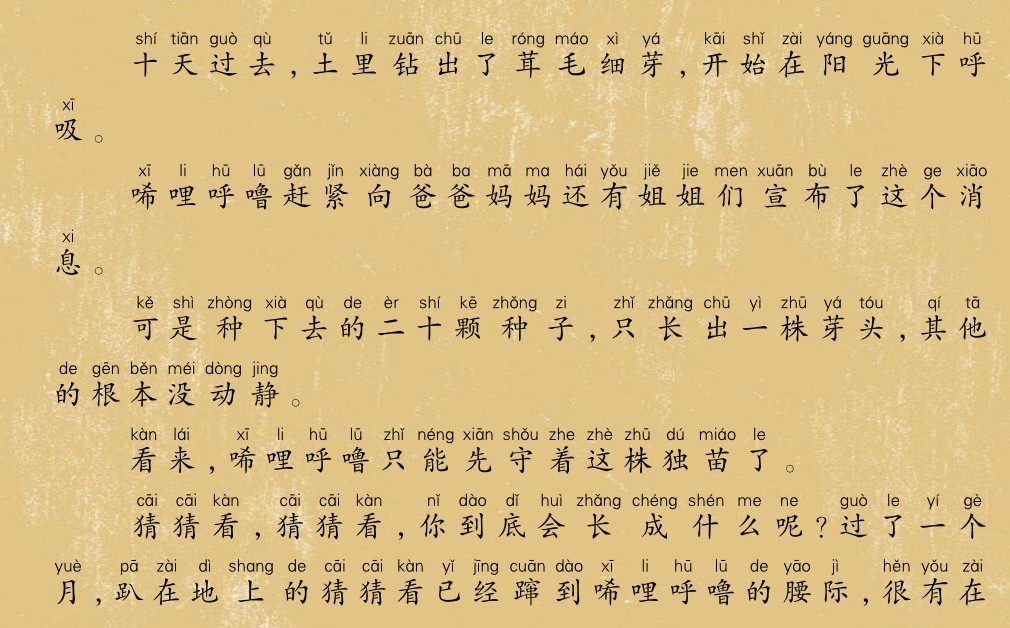 shí tiān guò qù tǔ li zuān chū le róng máo xì yá kāi shǐ zài yáng guāng xià hū
十天过去,土里钻出了茸毛细芽,开始在阳光下呼
xī
吸。
xī li hū lū gǎn jǐn xiàng bà ba mā ma hái yǒu jiě jie men xuān bù le zhè ge xiāo
唏哩呼噜赶紧向爸爸妈妈还有姐姐们宣布了这个消
xi
息。
kě shì zhòng xià qù de èr shí kē zhǒng zi zhǐ zhǎng chū yì zhū yá tóu qí tā
可是种下去的二十颗种子,只长出一株芽头,其他
de gēn běn méi dòng jing
的根本没动静。
kàn lái xī li hū lū zhǐ néng xiān shǒu zhe zhè zhū dú miáo le
看来,唏哩呼噜只能先守着这株独苗了。
cāi cāi kàn cāi cāi kàn nǐ dào dǐ huì zhǎng chéng shén me ne guò le yí gè
猜猜看,猜猜看,你到底会长成什么呢?过了一个
yuè pā zài dì shang de cāi cāi kàn yǐ jīng cuān dào xī li hū lū de yāo jì hěn yǒu zài
月,趴在地上的猜猜看已经蹿到唏哩呼噜的腰际,很有在